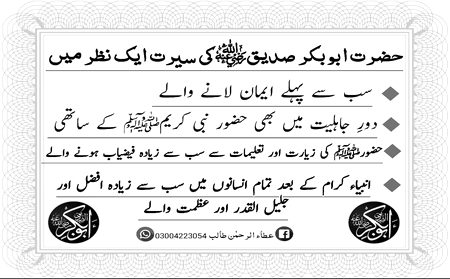 حضرت ابوبکر صدیق رضی اللہ عنہ کی سیرت ایک نظر میں
سب سے پہلے ایمان لانے والے
دورِ جاہلیت میں بھی حضور نبی کریم ﷺ کے ساتھی
حضور ﷺ کی زیارت اور تعلیمات سے سب سے زیادہ فیضیاب ہونے والے
انبیاء کرام کے بعد تمام انسانوں میں سب سے زیادہ افضل اور
جلیل القدر اور عظمت والے
ابوبکر
عطاء الرحمٰن طالب 03004223054
ابوبکر